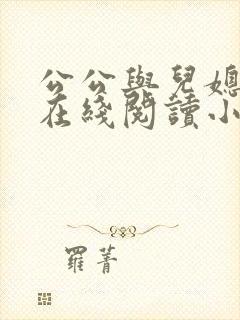 公公與兒媳
在綫閱讀小
羅菁